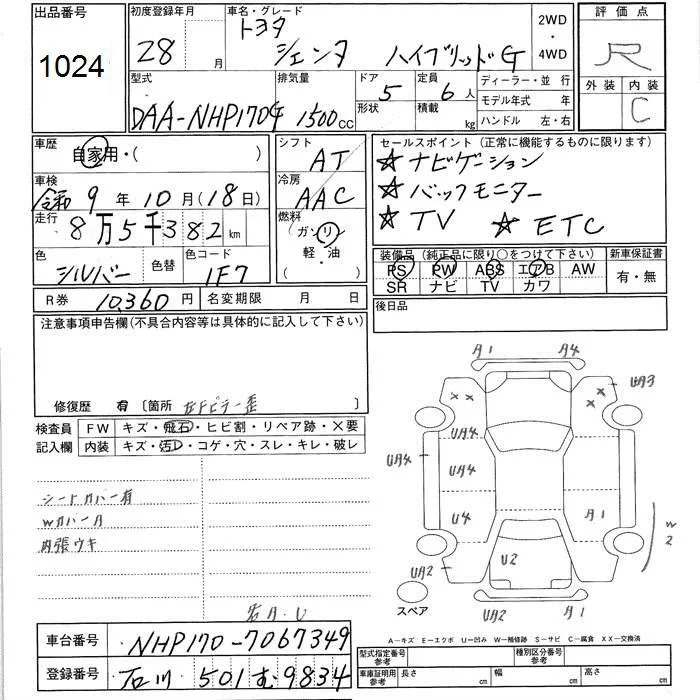 出品番号
1024
初度登録年月
28 月
車名・グレード
トヨタ
シエンタ ハイブリッドG
2WD
・
4WD
評価点
R
外装 内装
C
型式
DAA-NHP170G
排気量
1500 CC
ドア
5
形状
定員
6 人
積載 kg
ディーラー・並行
モデル年式 年
ハンドル 左・右
車歴
自家用・( )
シフト
AT
セールスポイント(正常に機能するものに限ります)
☆ ナビゲーション
☆ バックモニター
☆ TV ☆ ETC
車検
令和 9 年 10 月(18日)
冷房
AAC
走行
8万5千382 km
燃料
ガソリン
軽・油
( )
色
シルバー
色替
色コード
1F7
装備品(純正品に限り○をつけて下さい)
PS PW ABS エアB AW
SR ナビ TV カワ
新車保証書
有・無
R券 10,360 円
名変期限 月 日
後日品
注意事項申告欄(不具合内容等は具体的に記入して下さい)
修復歴 有 〔箇所 左Fピラー歪
検査員
記入欄
FW キズ・飛石・ヒビ割・リペア跡・×要
内装 キズ・汚D・コゲ・穴・スレ・キレ・破レ
シートカバー有
Wカバー
内張ウキ
A・U
A1 A4
UA3
UA4
UA4
UA4
U4
A1
W2
UA2
U2
UA2
UA2 A1
スペア
A-キズ E-エクボ U-凹み W-補修跡 S-サビ C-腐食 XX-交換済
車台番号 NHP170-7067349
登録番号 石川 501 む 9834
型式指定番号
参考
種別区分番号
参考
車庫証明用
参考
長さ cm 幅 cm 高さ cm